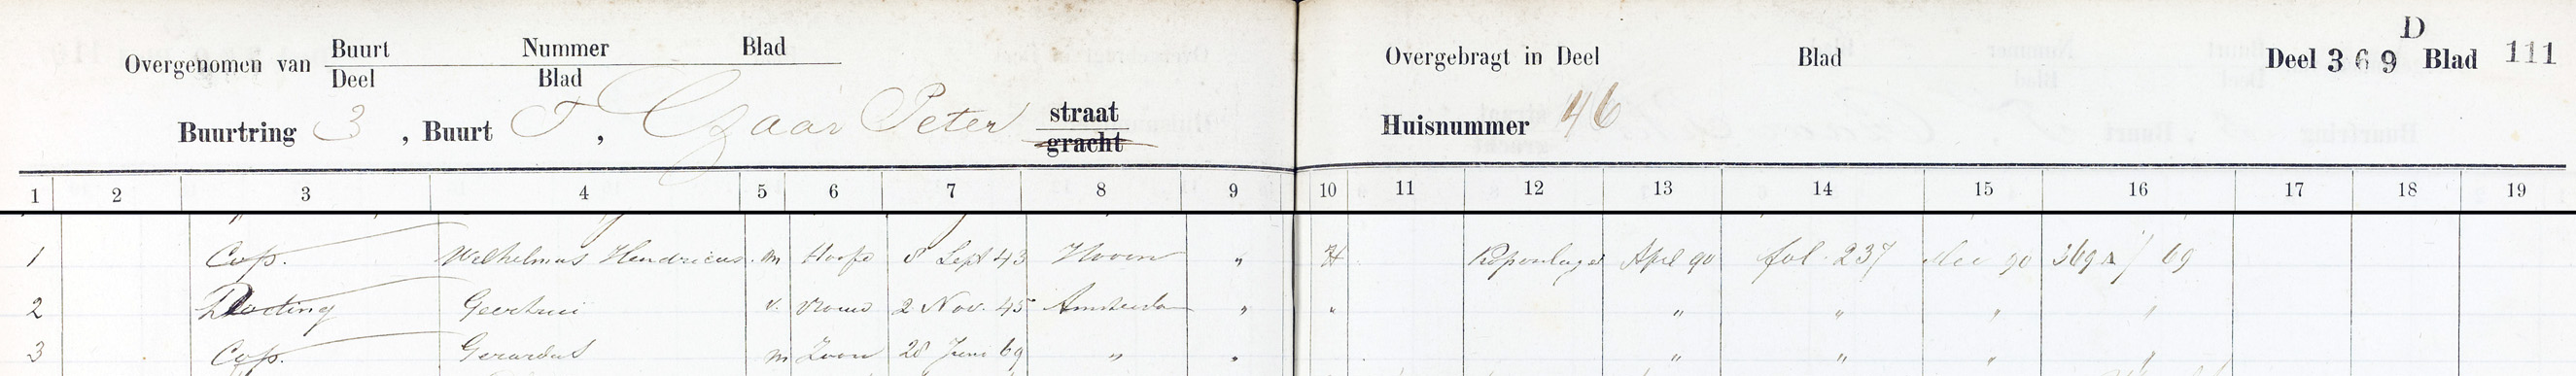 Overgenomen van Buurt Nummer Blad
Deel Blad
Buurtring 3, Buurt T, Czaar Peter straat
gracht
Overgebragt in Deel Blad Deel 369 D Blad 111
Huisnummer 46
1 2 3 4 5 6 7 8 9 10 11 12 13 14 15 16 17 18 19
1 Cop. Wilhelmus Hendricus m Hoofd 8 Sept 43 Hoorn " H April 90 fol. 237 90 69
2 v. vrouw 2 Nov. 45 Amsterdam " " " " " "
3 Cop. Gerardus m Zoon 28 Juni 69 " " " " " "